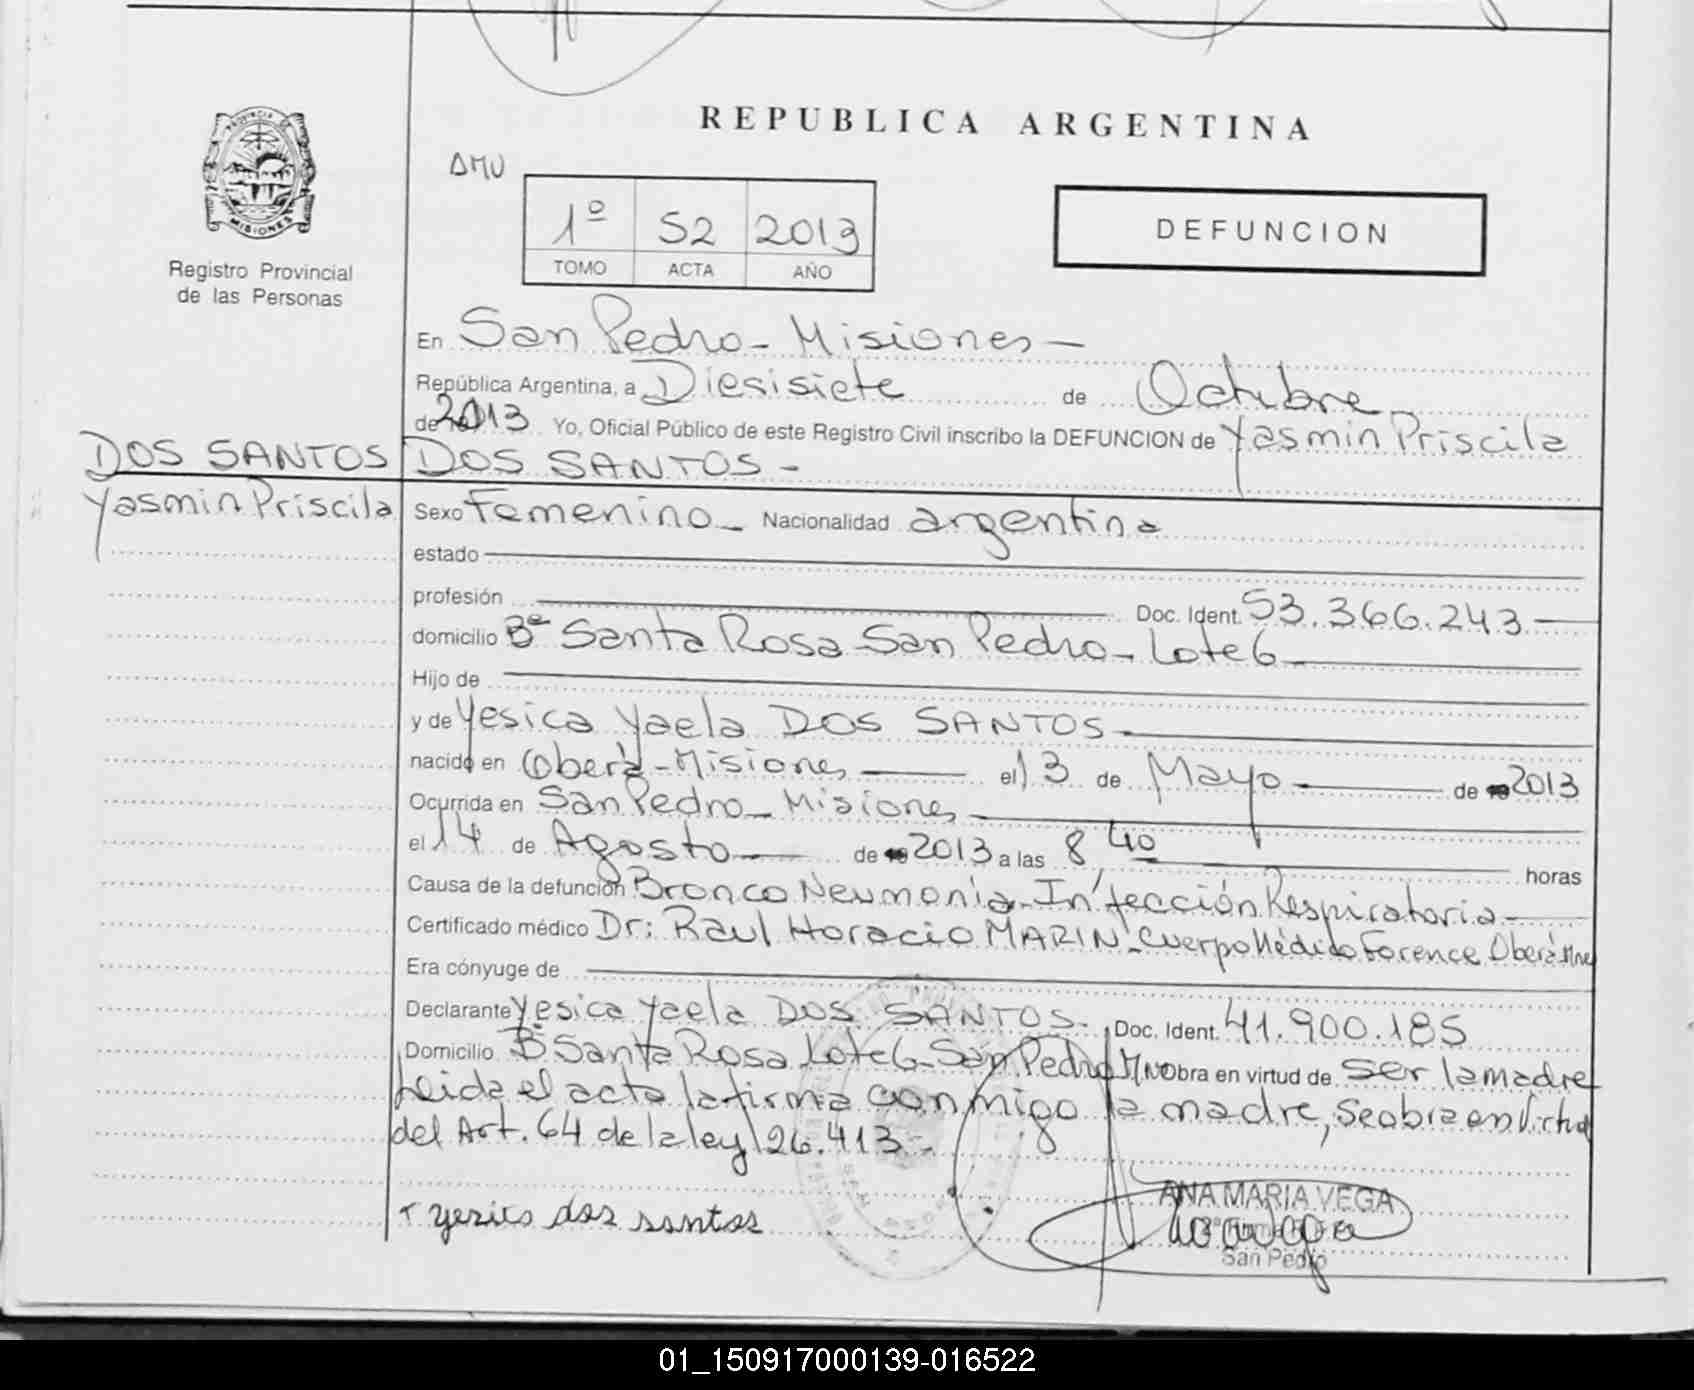 REPUBLICA ARGENTINA
PROVINCIA DE
MISIONES
Registro Provincial
de las Personas
AMU
1º 52 2013
TOMO ACTA AÑO
DEFUNCION
En San Pedro - Misiones -
República Argentina, a Diesisiete de Octubre
de 2013 Yo, Oficial Público de este Registro Civil inscribo la DEFUNCION de Yasmin Priscila
DOS SANTOS DOS SANTOS -
Yasmin Priscila
Sexo Femenino - Nacionalidad argentina
estado
profesión Doc. Ident. 53.366.243
domicilio Bº Santa Rosa San Pedro - Lote 6
Hijo de
y de Yesica Yaela DOS SANTOS
nacido en Oberá - Misiones el 13 de Mayo de 2013
Ocurrida en San Pedro - Misiones
el 14 de Agosto de 2013 a las 8,40 horas
Causa de la defunción Bronco Neumonía - Infección Respiratoria
Certificado médico Dr: Raul Horacio MARIN - Cuerpo Médico Forence Oberá Mnes
Era cónyuge de
Declarante Yesica Yaela DOS SANTOS - Doc. Ident. 41.900.185
Domicilio Bº Santa Rosa Lote 6 - San Pedro Mnes Obra en virtud de ser la madre
Leida el acta la firma conmigo la madre, se obra en Virtud
del Art. 64 de la ley 26.413 -
yesica dos santos
ANA MARIA VEGA
San Pedro
01_150917000139-016522